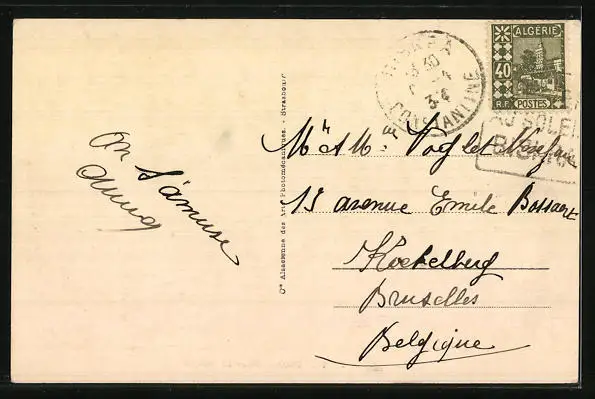 On s'amuse
Cie Alsacienne des Arts Photomécaniques - Strasbourg
BISKRA
CONSTANTINE
ALGÉRIE
40
R.F. POSTES
AU SOLEIL
BISKRA
Mr & M.
15 avenue Emile Bossaert
Koekelberg
Bruxelles
Belgique